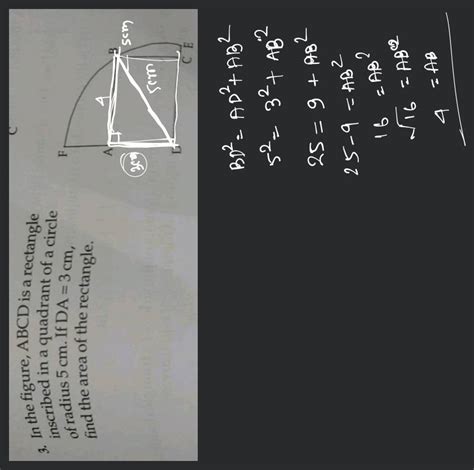 C
3. In the figure, ABCD is a rectangle
inscribed in a quadrant of a circle
of radius 5 cm. If DA = 3 cm,
find the area of the rectangle.
F
A
4
B
5cm
5cm
D
C E
BD² = AD² + AB²
5² = 3² + AB²
25 = 9 + AB²
25 - 9 = AB²
16 = AB²
√16 = AB²
4 = AB